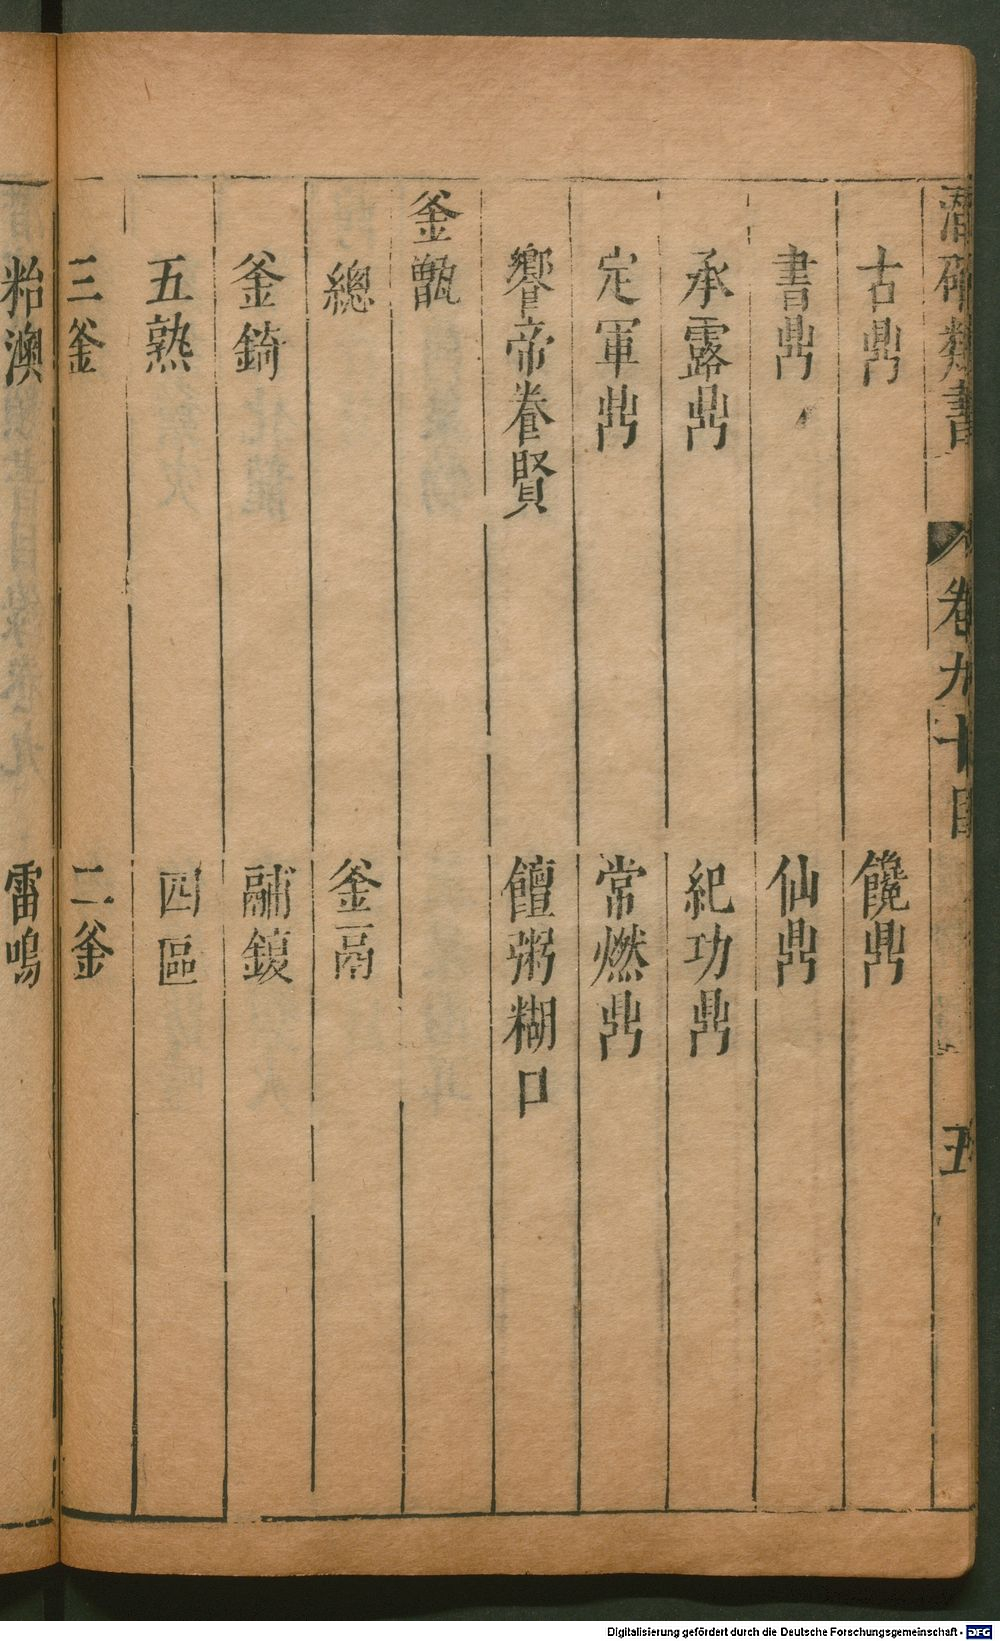 潛確類書 卷九十目 五
古鼎 饞鼎
書鼎 仙鼎
承露鼎 紀功鼎
定軍鼎 常燃鼎
饗帝養賢 饘粥糊口
釜甑
總 釜鬲
釜錡 鬴鍑
五熟 四區
三釜 二釜
粭澳 雷鳴
Digitalisierung gefördert durch die Deutsche Forschungsgemeinschaft - DFG